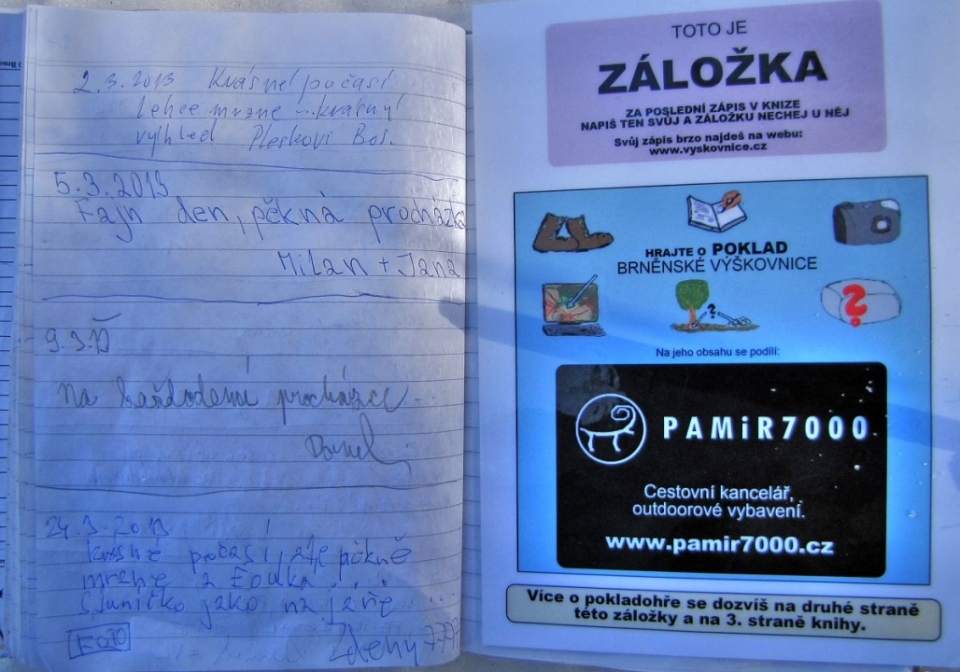 2.3.2013 Krásné počasí
lehce mrzne ... krásný
výhled Pleskovi Bos.
5.3.2013
Fajn den, pěkná procházka
Milan + Jana
9.3.13
Na každodenní procházce
24.3.2013
krásné počasí, ale pěkně
mrzne a fouká . . .
Sluníčko jako na jaře ...
Zdeny
TOTO JE
ZÁLOŽKA
ZA POSLEDNÍ ZÁPIS V KNIZE
NAPIŠ TEN SVŮJ A ZÁLOŽKU NECHEJ U NĚJ
Svůj zápis brzo najdeš na webu:
www.vyskovnice.cz
HRAJTE O POKLAD
BRNĚNSKÉ VÝŠKOVNICE
?
?
Na jeho obsahu se podílí:
PAMiR7000
Cestovní kancelář,
outdoorové vybavení.
www.pamir7000.cz
Více o pokladohře se dozvíš na druhé straně
této záložky a na 3. straně knihy.